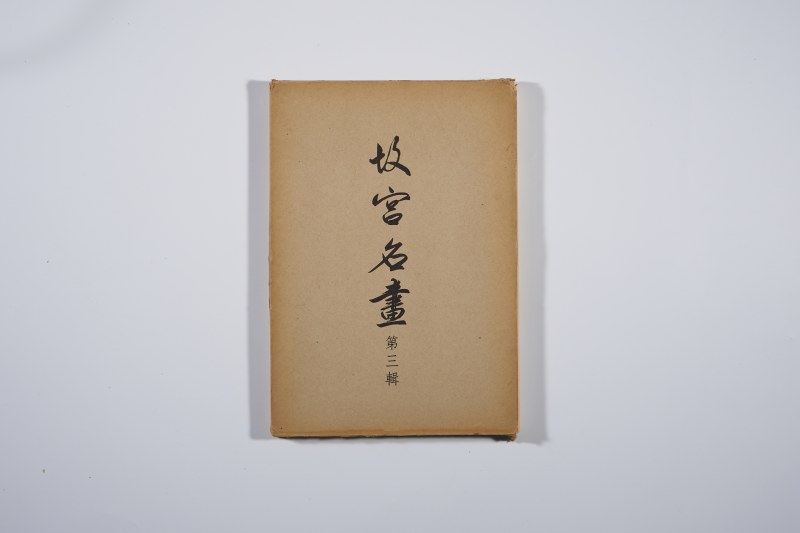 故宮名畫
第三輯